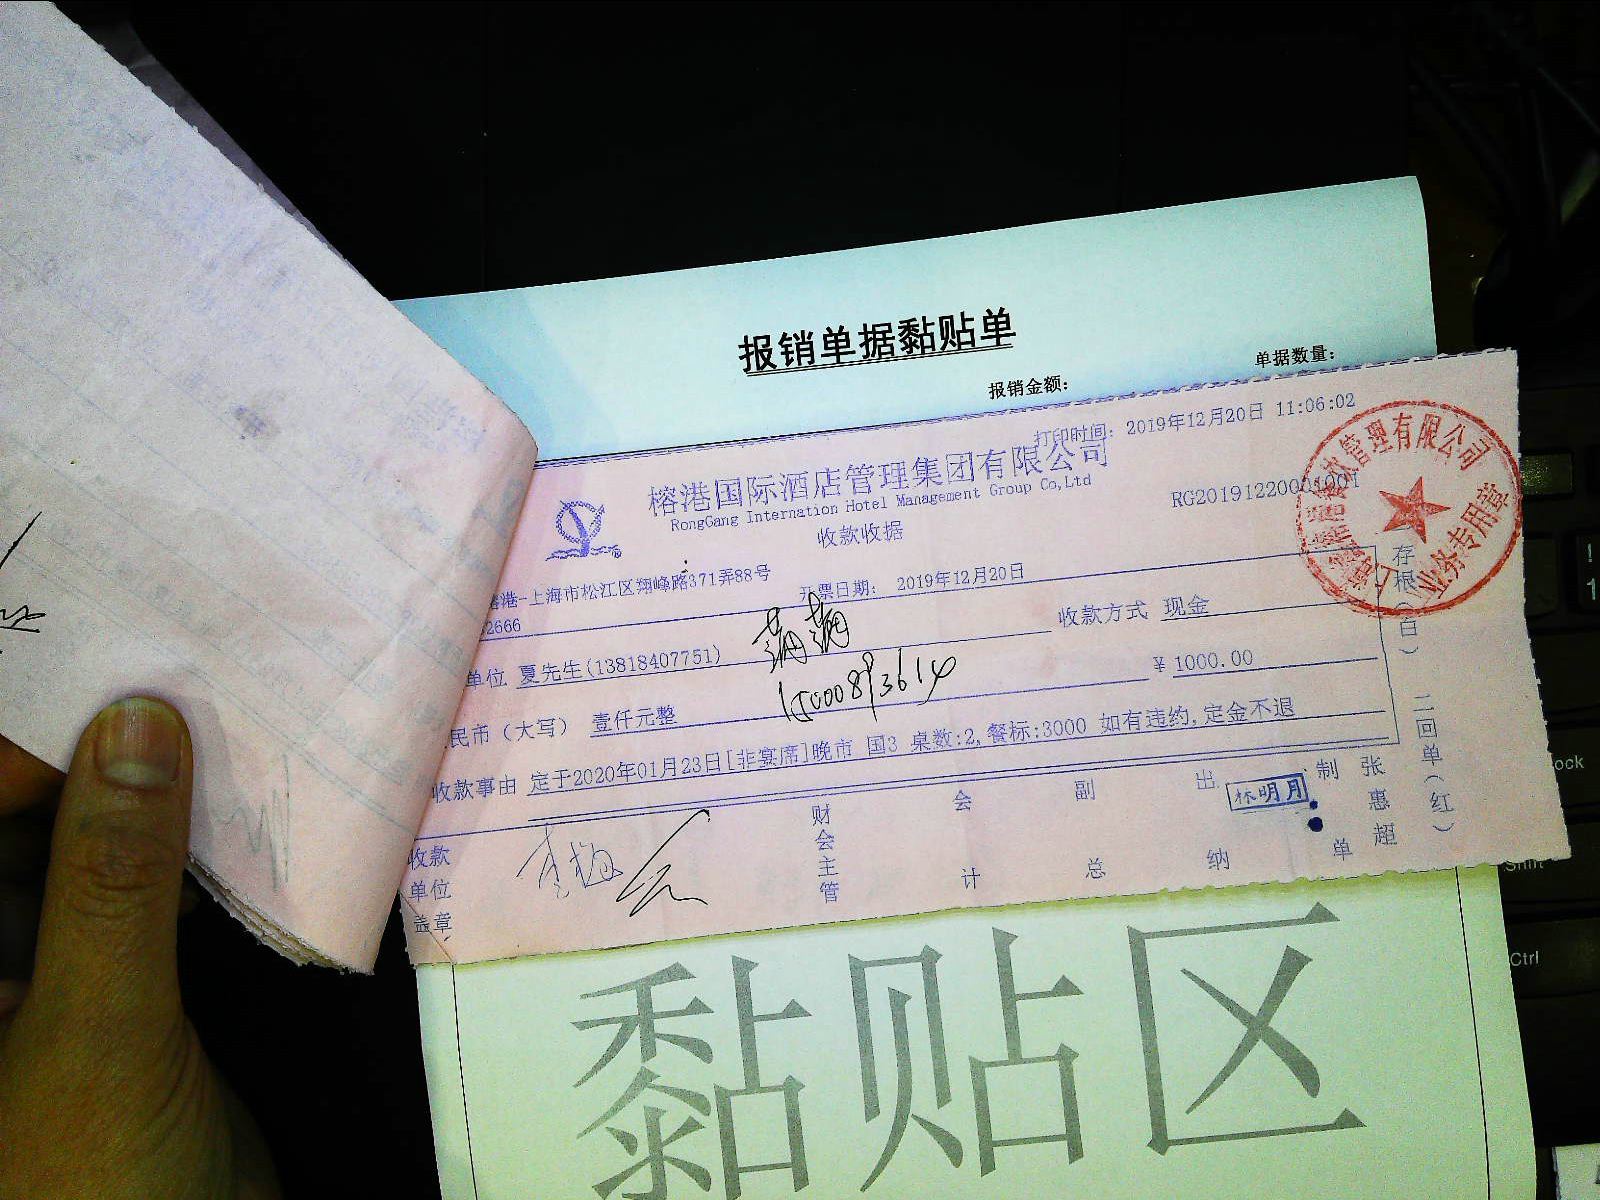 报销单据黏贴单
单据数量：
报销金额：
打印时间：2019年12月20日 11:06:02
榕港国际酒店管理集团有限公司
RongGang Internation Hotel Management Group Co,Ltd
RG20191220001001
收款收据
榕港-上海市松江区翔峰路371弄88号
开票日期： 2019年12月20日
2666
单位 夏先生(13818407751)
收款方式 现金
民币（大写） 壹仟元整
￥ 1000.00
收款事由 定于2020年01月23日[非宴席]晚市 国3 桌数:2,餐标:3000 如有违约,定金不退
收款单位盖章
财会主管
会计
副总
出纳
林明月
制单
张惠超
存根（白）
二回单（红）
管理有限公司
业务专用章
黏贴区
Ctrl
Shift